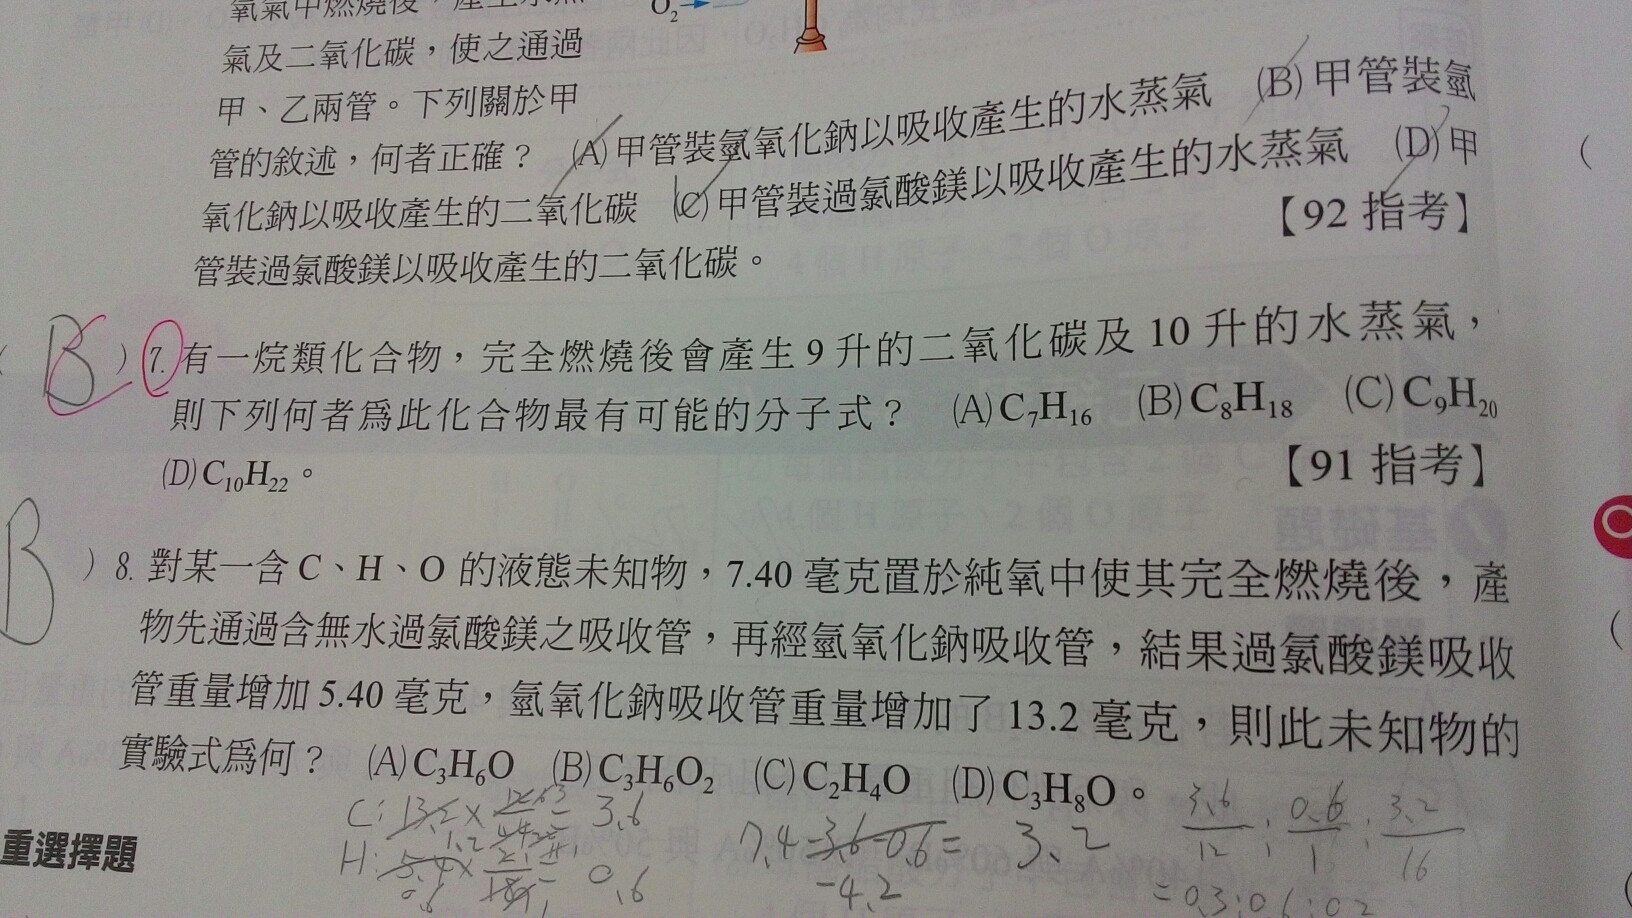 O₂
氣及二氧化碳，使之通過
甲、乙兩管。下列關於甲
管的敘述，何者正確？ (A)甲管裝氫氧化鈉以吸收產生的水蒸氣 (B)甲管裝氫
氧化鈉以吸收產生的二氧化碳 (C)甲管裝過氯酸鎂以吸收產生的水蒸氣 (D)甲
管裝過氯酸鎂以吸收產生的二氧化碳。 【92 指考】
B ) 7. 有一烷類化合物，完全燃燒後會產生 9 升的二氧化碳及 10 升的水蒸氣，
則下列何者爲此化合物最有可能的分子式？ (A)C₇H₁₆ (B)C₈H₁₈ (C)C₉H₂₀
(D)C₁₀H₂₂。 【91 指考】
B ) 8. 對某一含 C、H、O 的液態未知物，7.40 毫克置於純氧中使其完全燃燒後，產
物先通過含無水過氯酸鎂之吸收管，再經氫氧化鈉吸收管，結果過氯酸鎂吸收
管重量增加 5.40 毫克，氫氧化鈉吸收管重量增加了 13.2 毫克，則此未知物的
實驗式爲何？ (A)C₃H₆O (B)C₃H₆O₂ (C)C₂H₄O (D)C₃H₈O。
C: 13.2 × = 3.6
H: 5.4 × = 0.6
7.4 -3.6 -0.6 = 3.2
-4.2
3.6/12 : 0.6/1 : 3.2/16
= 0.3 : 0.6 : 0.2
重選擇題